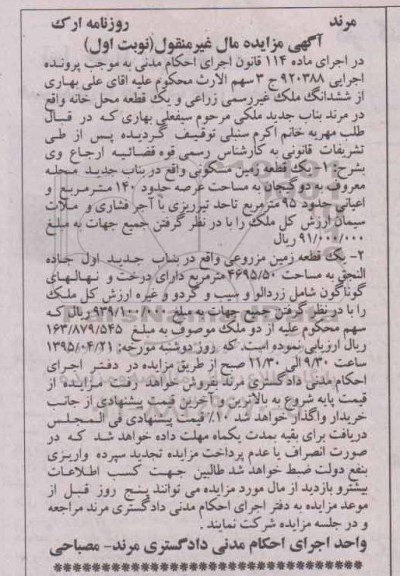 مرند روزنامه ارک
آگهی مزایده مال غیرمنقول(نوبت اول)
در اجرای ماده ۱۱۴ قانون اجرای احکام مدنی به موجب پرونده
اجرایی ۹۲۰۳۸۸ ج ۳ سهم الارث محکوم علیه اقای علی بهاری
از ششدانگ ملک غیررسمی زراعی و یک قطعه محل خانه واقع
در مرند بناب جدید ملکی مرحوم سیفعلی بهاری که در قبال
طلب مهریه خانم اکرم سنبلی توقیف گردیده پس از طی
تشریفات قانونی به کارشناس رسمی قوه قضائیه ارجاع وی
بشرح: ۱- یک قطعه زمین مسکونی واقع در بناب جدید محله
معروف به دو گیجان به مساحت عرصه حدود ۱۴۰ مترمربع و
اعیانی حدود ۹۵ مترمربع تاحد تیرریزی با آجر فشاری و ملات
سیمان ارزش کل ملک را با در نظر گرفتن جمیع جهات به مبلغ
۹۱/۰۰۰/۰۰۰ ریال
۲- یک قطعه زمین مزروعی واقع در بناب جدید اول جاده
النجق به مساحت ۴۶۹۵/۵۰ مترمربع دارای درخت و نهالهای
گوناگون شامل زردالو و سیب و گردو و غیره ارزش کل ملک
را با در نظر گرفتن جمیع جهات به مبلغ ۹۳۹/۱۰۰/۰۰۰ ریال که
سهم محکوم علیه از دو ملک موصوف به مبلغ ۱۶۳/۸۷۹/۵۴۵
ریال ارزیابی نموده است. که روز دوشنبه مورخه: ۱۳۹۵/۰۴/۲۱
ساعت ۹/۳۰ الی ۱۱/۳۰ صبح از طریق مزایده در دفتر اجرای
احکام مدنی دادگستری مرند بفروش خواهد رفت مزایده از
قیمت پایه شروع به بالاترین و آخرین قیمت پیشنهادی از جانب
خریدار واگذار خواهد شد ۱۰٪ قیمت پیشنهادی فی المجلس
دریافت برای بقیه بمدت یکماه مهلت داده خواهد شد که در
صورت انصراف یا عدم پرداخت مزایده تجدید سپرده واریزی
بنفع دولت ضبط خواهد شد طالبین جهت کسب اطلاعات
بیشترو بازدید از مال مورد مزایده می توانند پنج روز قبل از
موعد مزایده به دفتر اجرای احکام مدنی دادگستری مرند مراجعه
و در جلسه مزایده شرکت نمایند .
واحد اجرای احکام مدنی دادگستری مرند- مصباحی